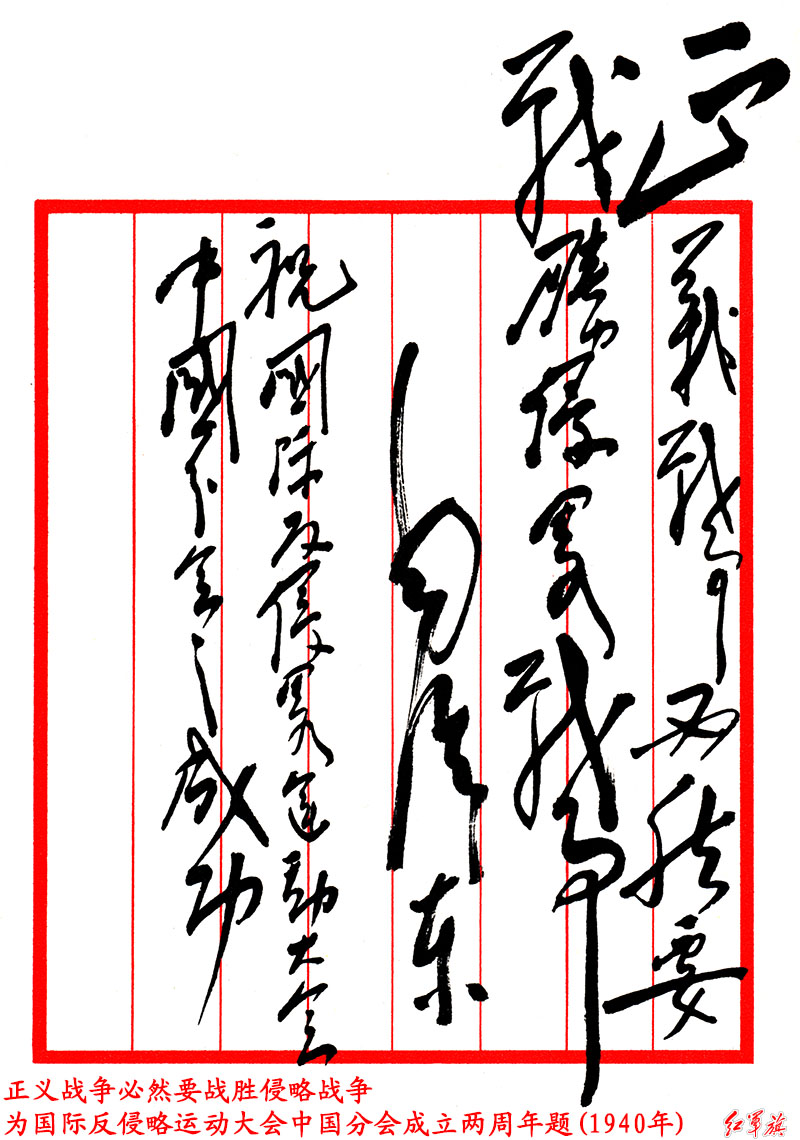 正義战争必然要
战勝侵畧战争
毛泽东
祝國际反侵畧运动大会
中國分会之成功
正义战争必然要战胜侵略战争
为国际反侵略运动大会中国分会成立两周年题(1940年)
红军旗